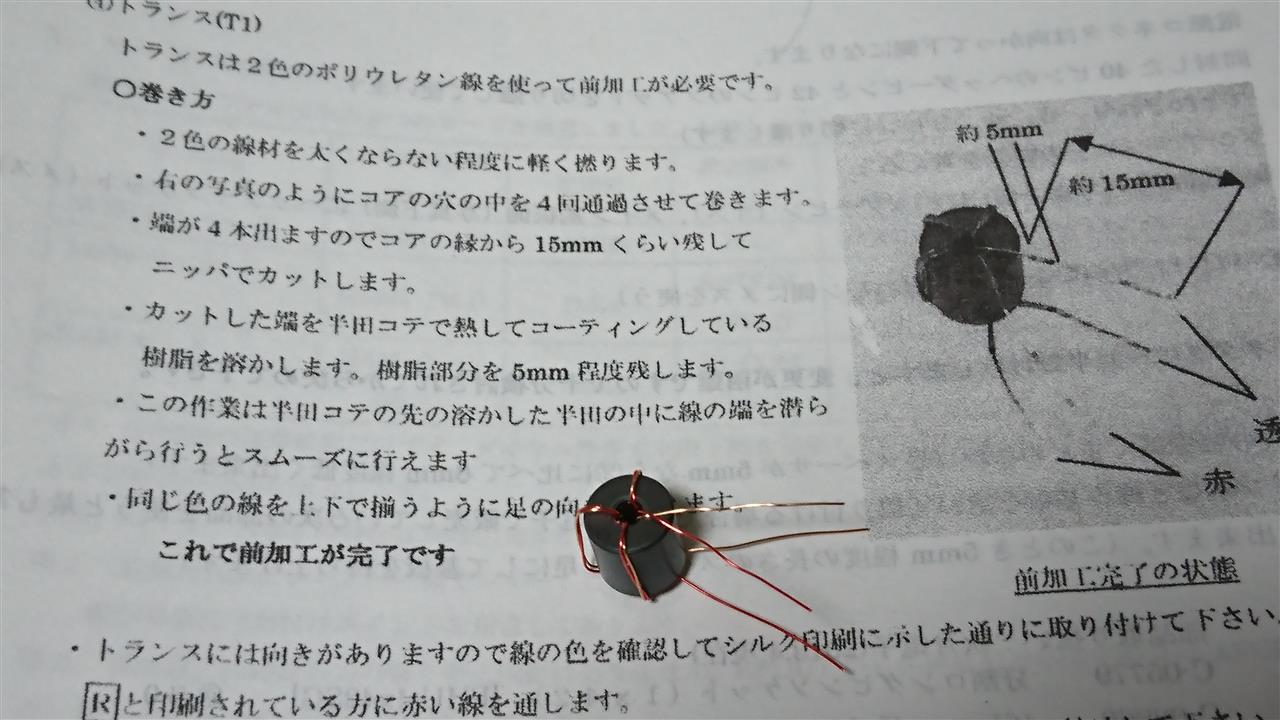 (4)トランス(T1)
トランスは2色のポリウレタン線を使って前加工が必要です。
○巻き方
・2色の線材を太くならない程度に軽く撚ります。
・右の写真のようにコアの穴の中を4回通過させて巻きます。
・端が4本出ますのでコアの縁から15mmくらい残して
ニッパでカットします。
・カットした端を半田コテで熱してコーティングしている
樹脂を溶かします。樹脂部分を5mm程度残します。
・この作業は半田コテの先の溶かした半田の中に線の端を潜ら
がら行うとスムーズに行えます
・同じ色の線を上下で揃うように足の向 ます。
これで前加工が完了です
約5mm
約15mm
透
赤
前加工完了の状態
・トランスには向きがありますので線の色を確認してシルク印刷に示した通りに取り付けて下さい
Rと印刷されている方に赤い線を通します。